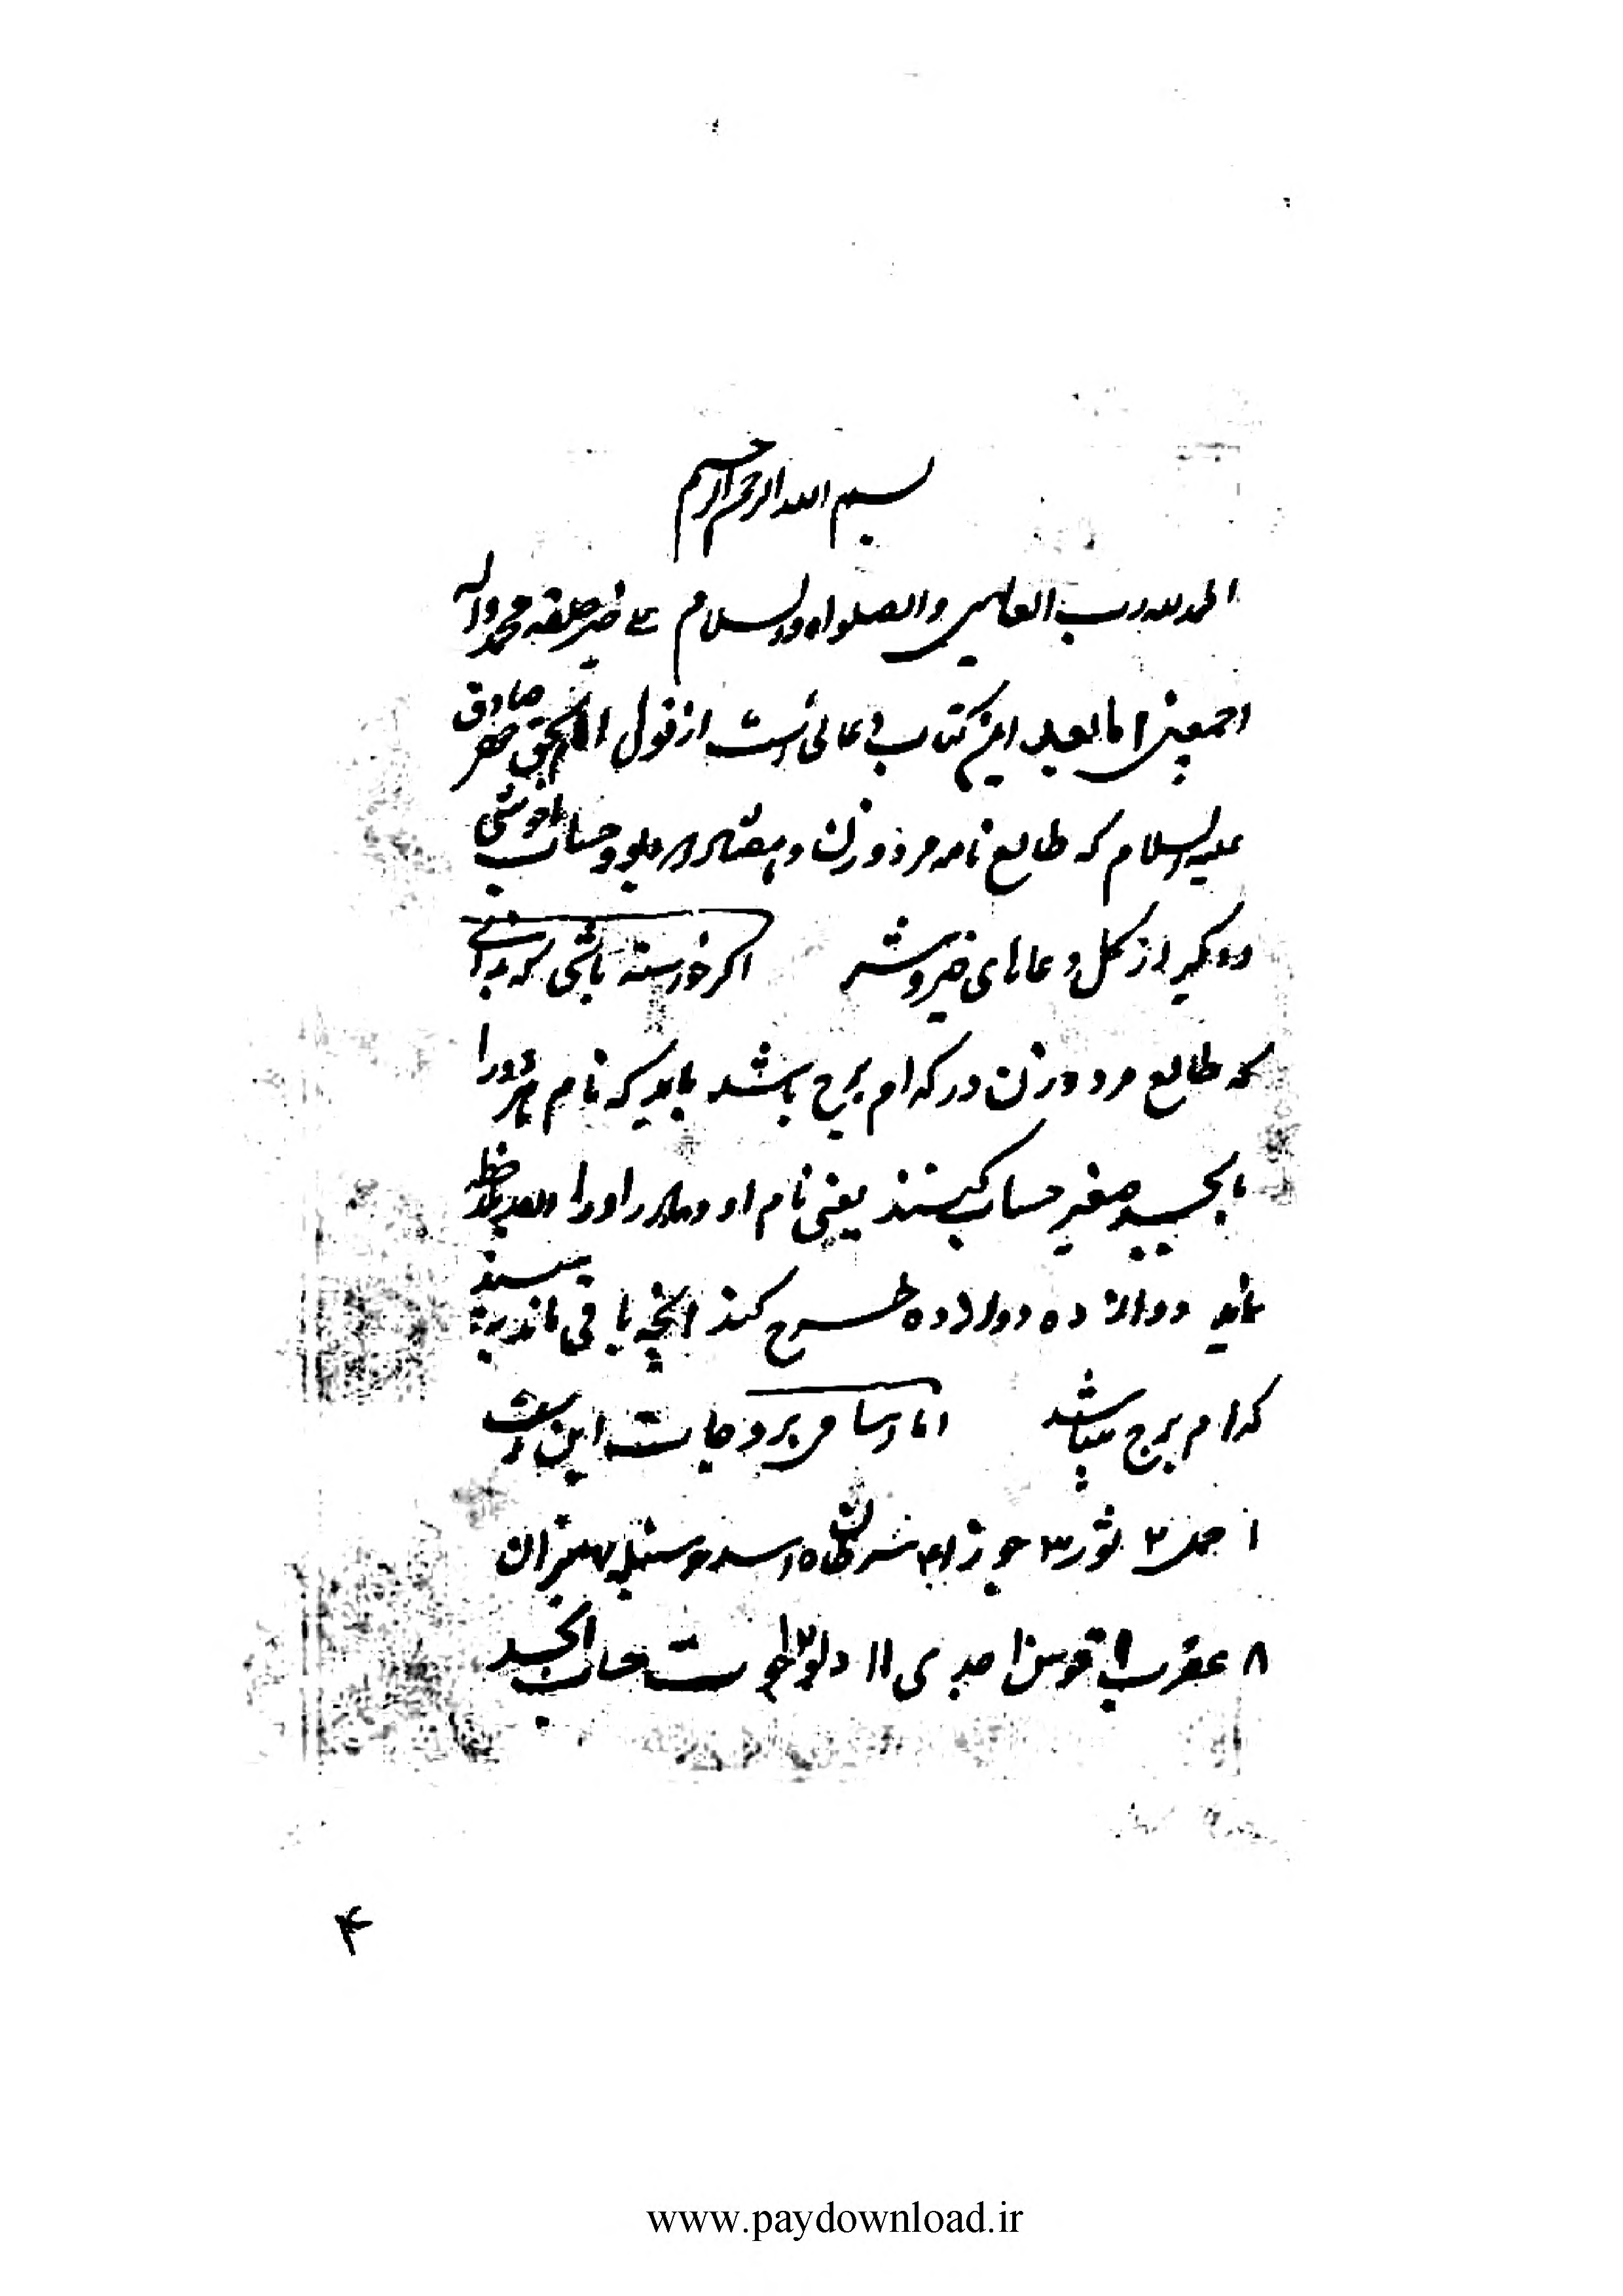 بسم الله الرحمن الرحیم
الحمد لله رب العالمین والصلواه والسلام علی خیر خلقه محمد واله
اجمعین اما بعد این کتاب دعائی است از قول امام بحق جعفر صادق
علیه السلام که طالع نامه مرد و زن و وحساب ناخوشی
ودیگر از کل دعاهای خیر و شر اگر خواسته باشی که بدانی
که طالع مرد و زن در کدام برج باشد باید که نام هر دو را
بابجد صغیر حساب کنند یعنی نام او و مادر او را
نماید دوازده دوازده طرح کند انچه باقی ماند ببیند
کدام برج میباشد اما اسامی بروجات این است
۱ حمل ۲ ثور ۳ جوزا ۴ سرطان ۵ اسد ۶ سنبله ۷ میزان
۸ عقرب ۹ قوس ۱۰ جدی ۱۱ دلو ۱۲ حوت حساب ابجد
۴
www.paydownload.ir